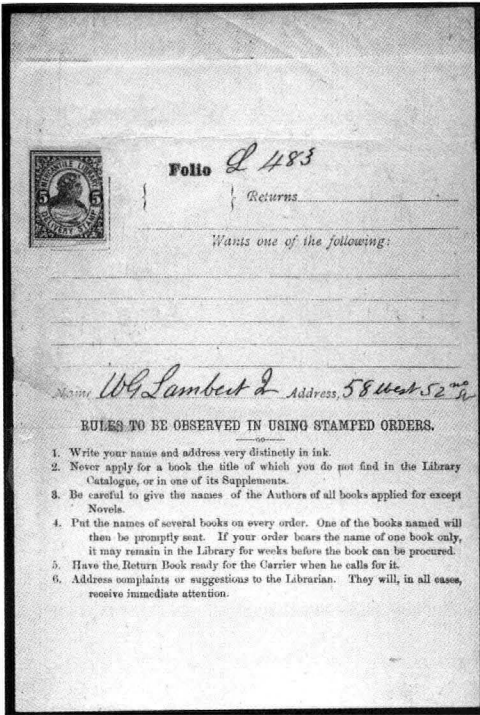 MERCANTILE LIBRARY
5 5
DELIVERY STAMP
Folio L 483
Returns
Wants one of the following:
Name, WG Lambert 2 Address, 58 West 52nd St
RULES TO BE OBSERVED IN USING STAMPED ORDERS.
1. Write your name and address very distinctly in ink.
2. Never apply for a book the title of which you do not find in the Library
Catalogue, or in one of its Supplements.
3. Be careful to give the names of the Authors of all books applied for except
Novels.
4. Put the names of several books on every order. One of the books named will
then be promptly sent. If your order bears the name of one book only,
it may remain in the Library for weeks before the book can be procured.
5. Have the Return Book ready for the Carrier when he calls for it.
6. Address complaints or suggestions to the Librarian. They will, in all cases,
receive immediate attention.